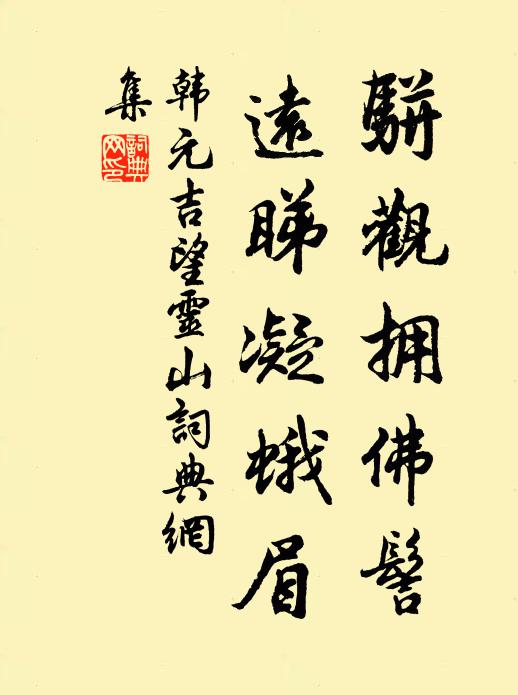 駢觀擁佛髻
遠睇凝蛾眉
韩元吉望靈山詞典網
集
詞典网印